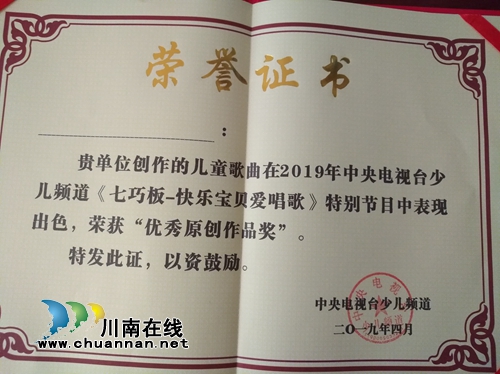 荣誉证书
：
贵单位创作的儿童歌曲在2019年中央电视台少
儿频道《七巧板-快乐宝贝爱唱歌》特别节目中表现
出色，荣获“优秀原创作品奖”。
特发此证，以资鼓励。
中央电视台少儿频道
二〇一九年四月
中央电视
少儿频道
川南在线
www.chuannan.net